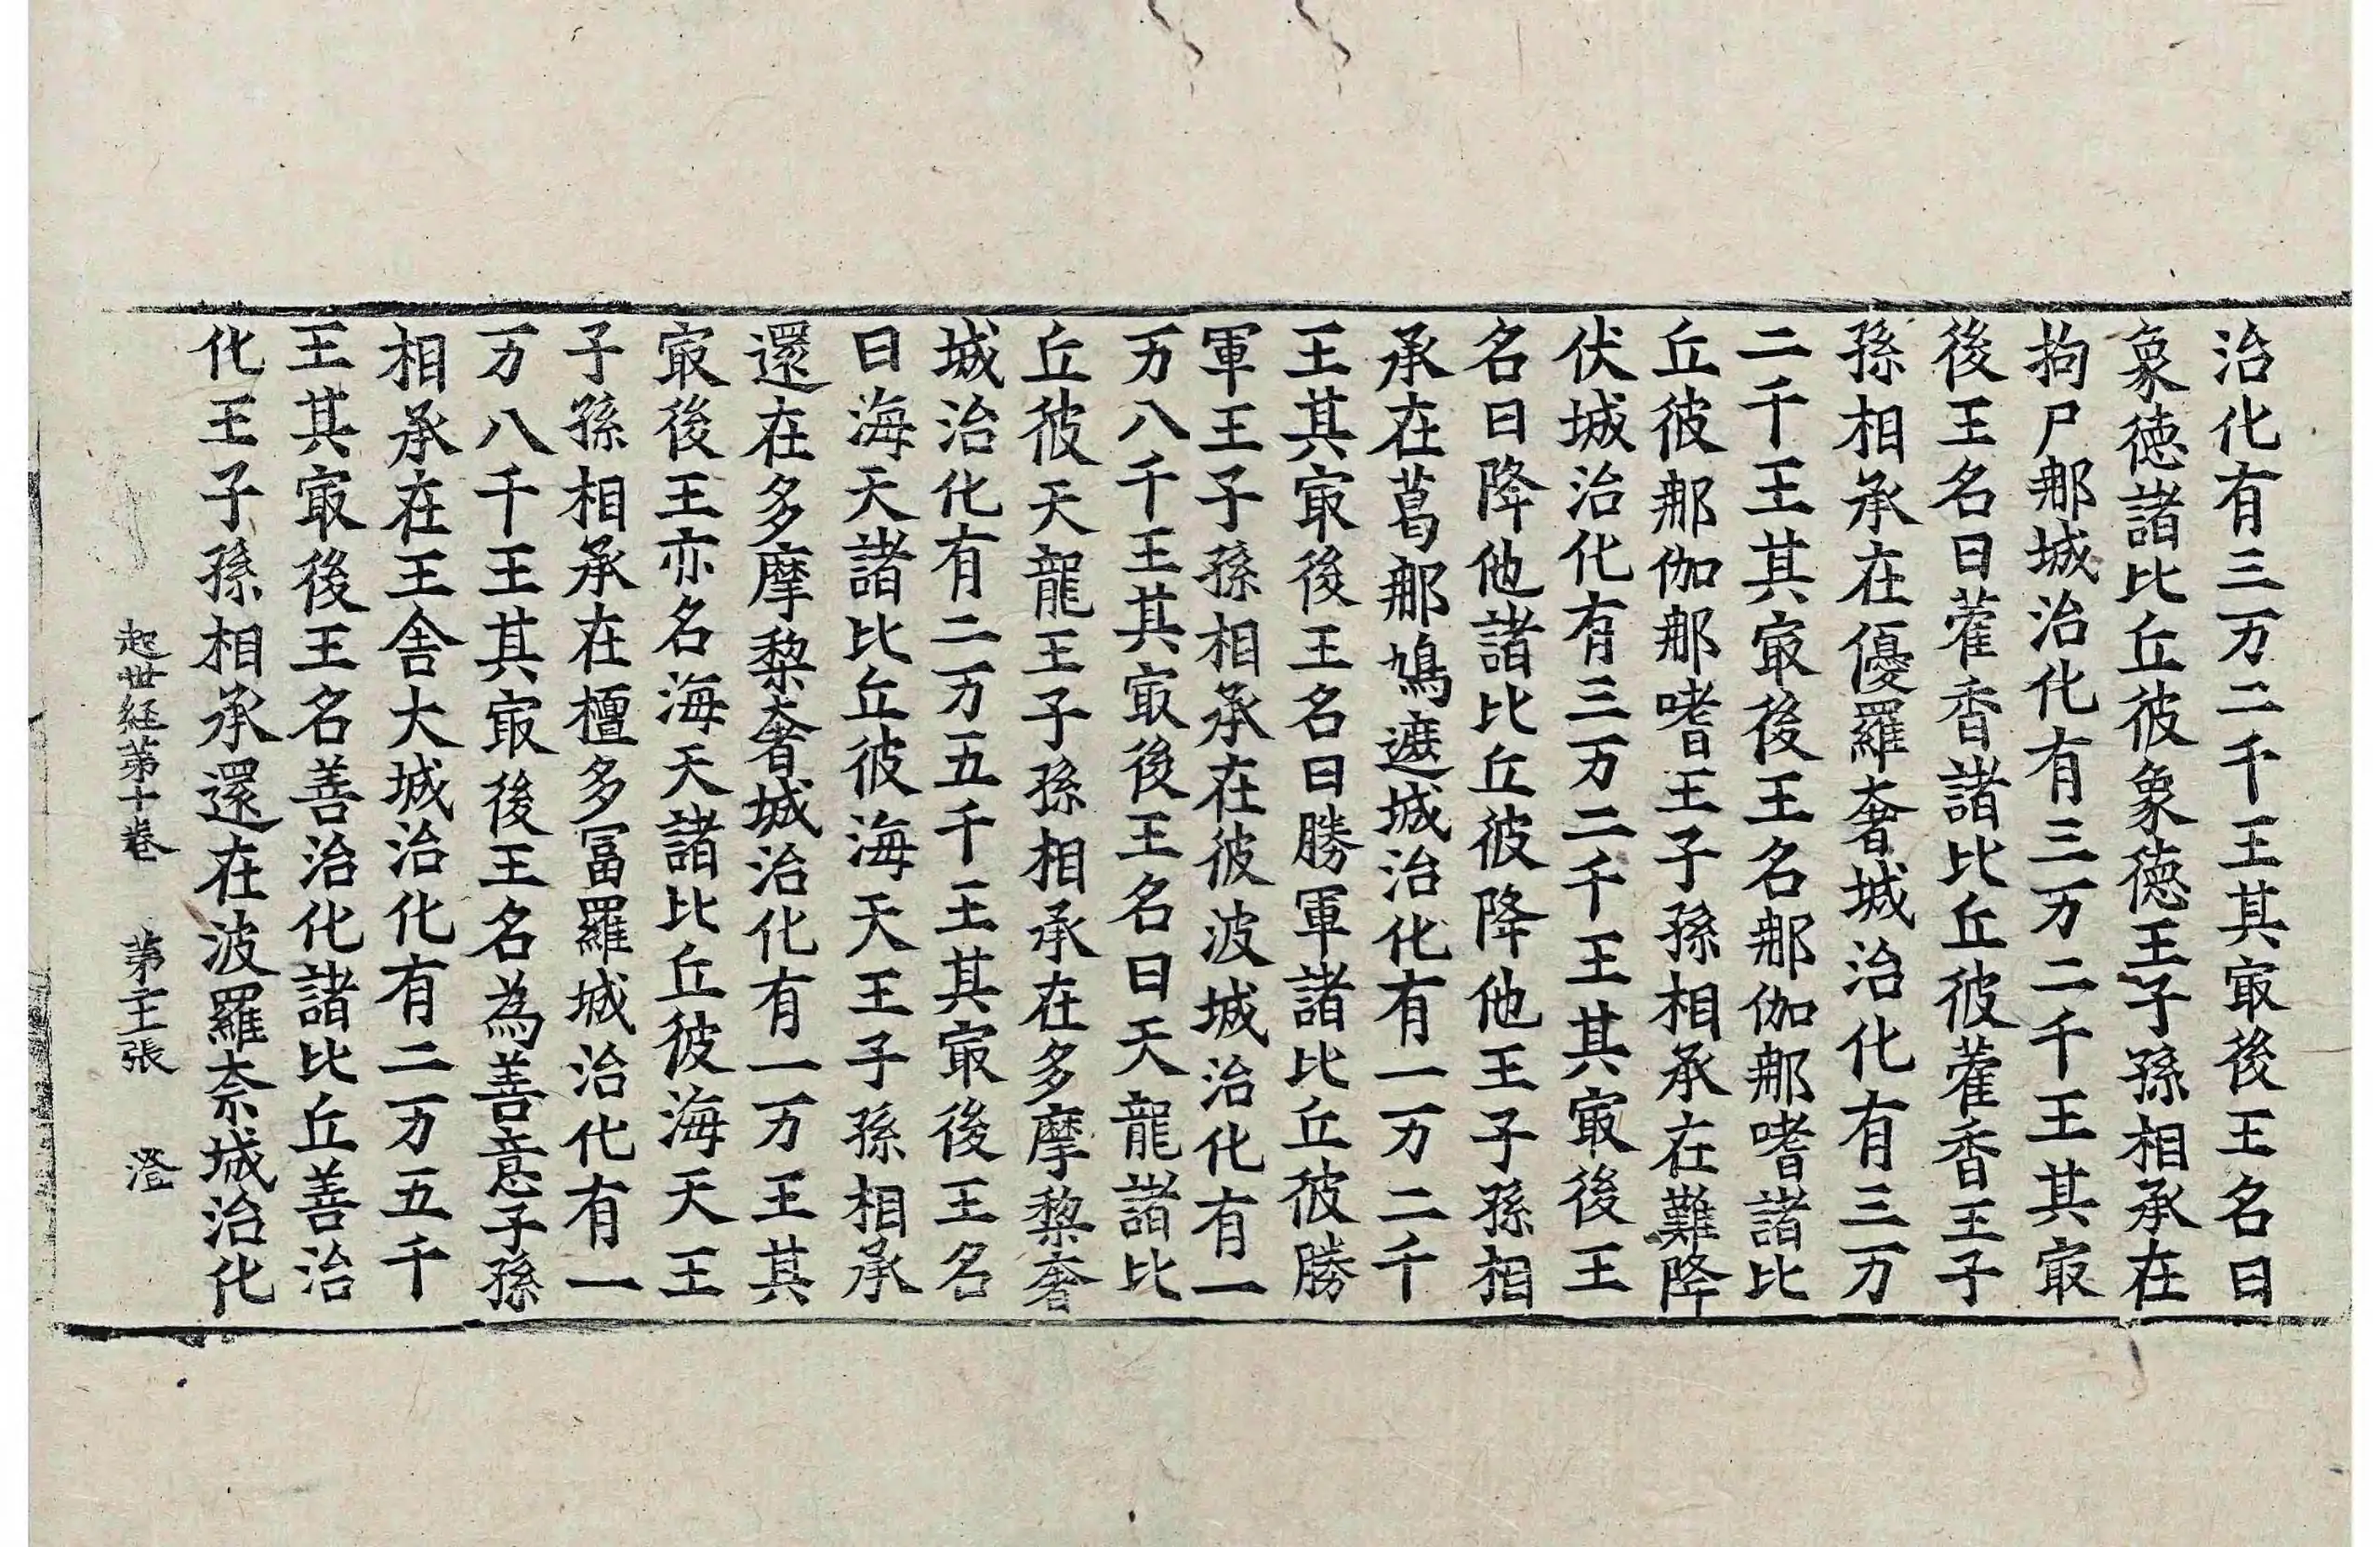 治化有三万二千王其㝡後王名曰
象徳諸比丘彼象徳王子孫相承在
拘尸那城治化有三万二千王其㝡
後王名曰藿香諸比丘彼藿香王子
孫相承在優羅奢城治化有三万
二千王其㝡後王名那伽那嗜諸比
丘彼那伽那嗜王子孫相承在難降
伏城治化有三万二千王其㝡後王
名曰降他諸比丘彼降他王子孫相
承在葛那鳩遮城治化有一万二千
王其㝡後王名曰勝軍諸比丘彼勝
軍王子孫相承在彼波城治化有一
万八千王其㝡後王名曰天龍諸比
丘彼天龍王子孫相承在多摩黎奢
城治化有二万五千王其㝡後王名
曰海天諸比丘彼海天王子孫相承
還在多摩黎奢城治化有一万王其
㝡後王亦名海天諸比丘彼海天王
子孫相承在檀多冨羅城治化有一
万八千王其㝡後王名為善意子孫
相承在王舎大城治化有二万五千
王其㝡後王名善治化諸比丘善治
化王子孫相承還在波羅奈城治化
起世経第十巻 第 張 澄